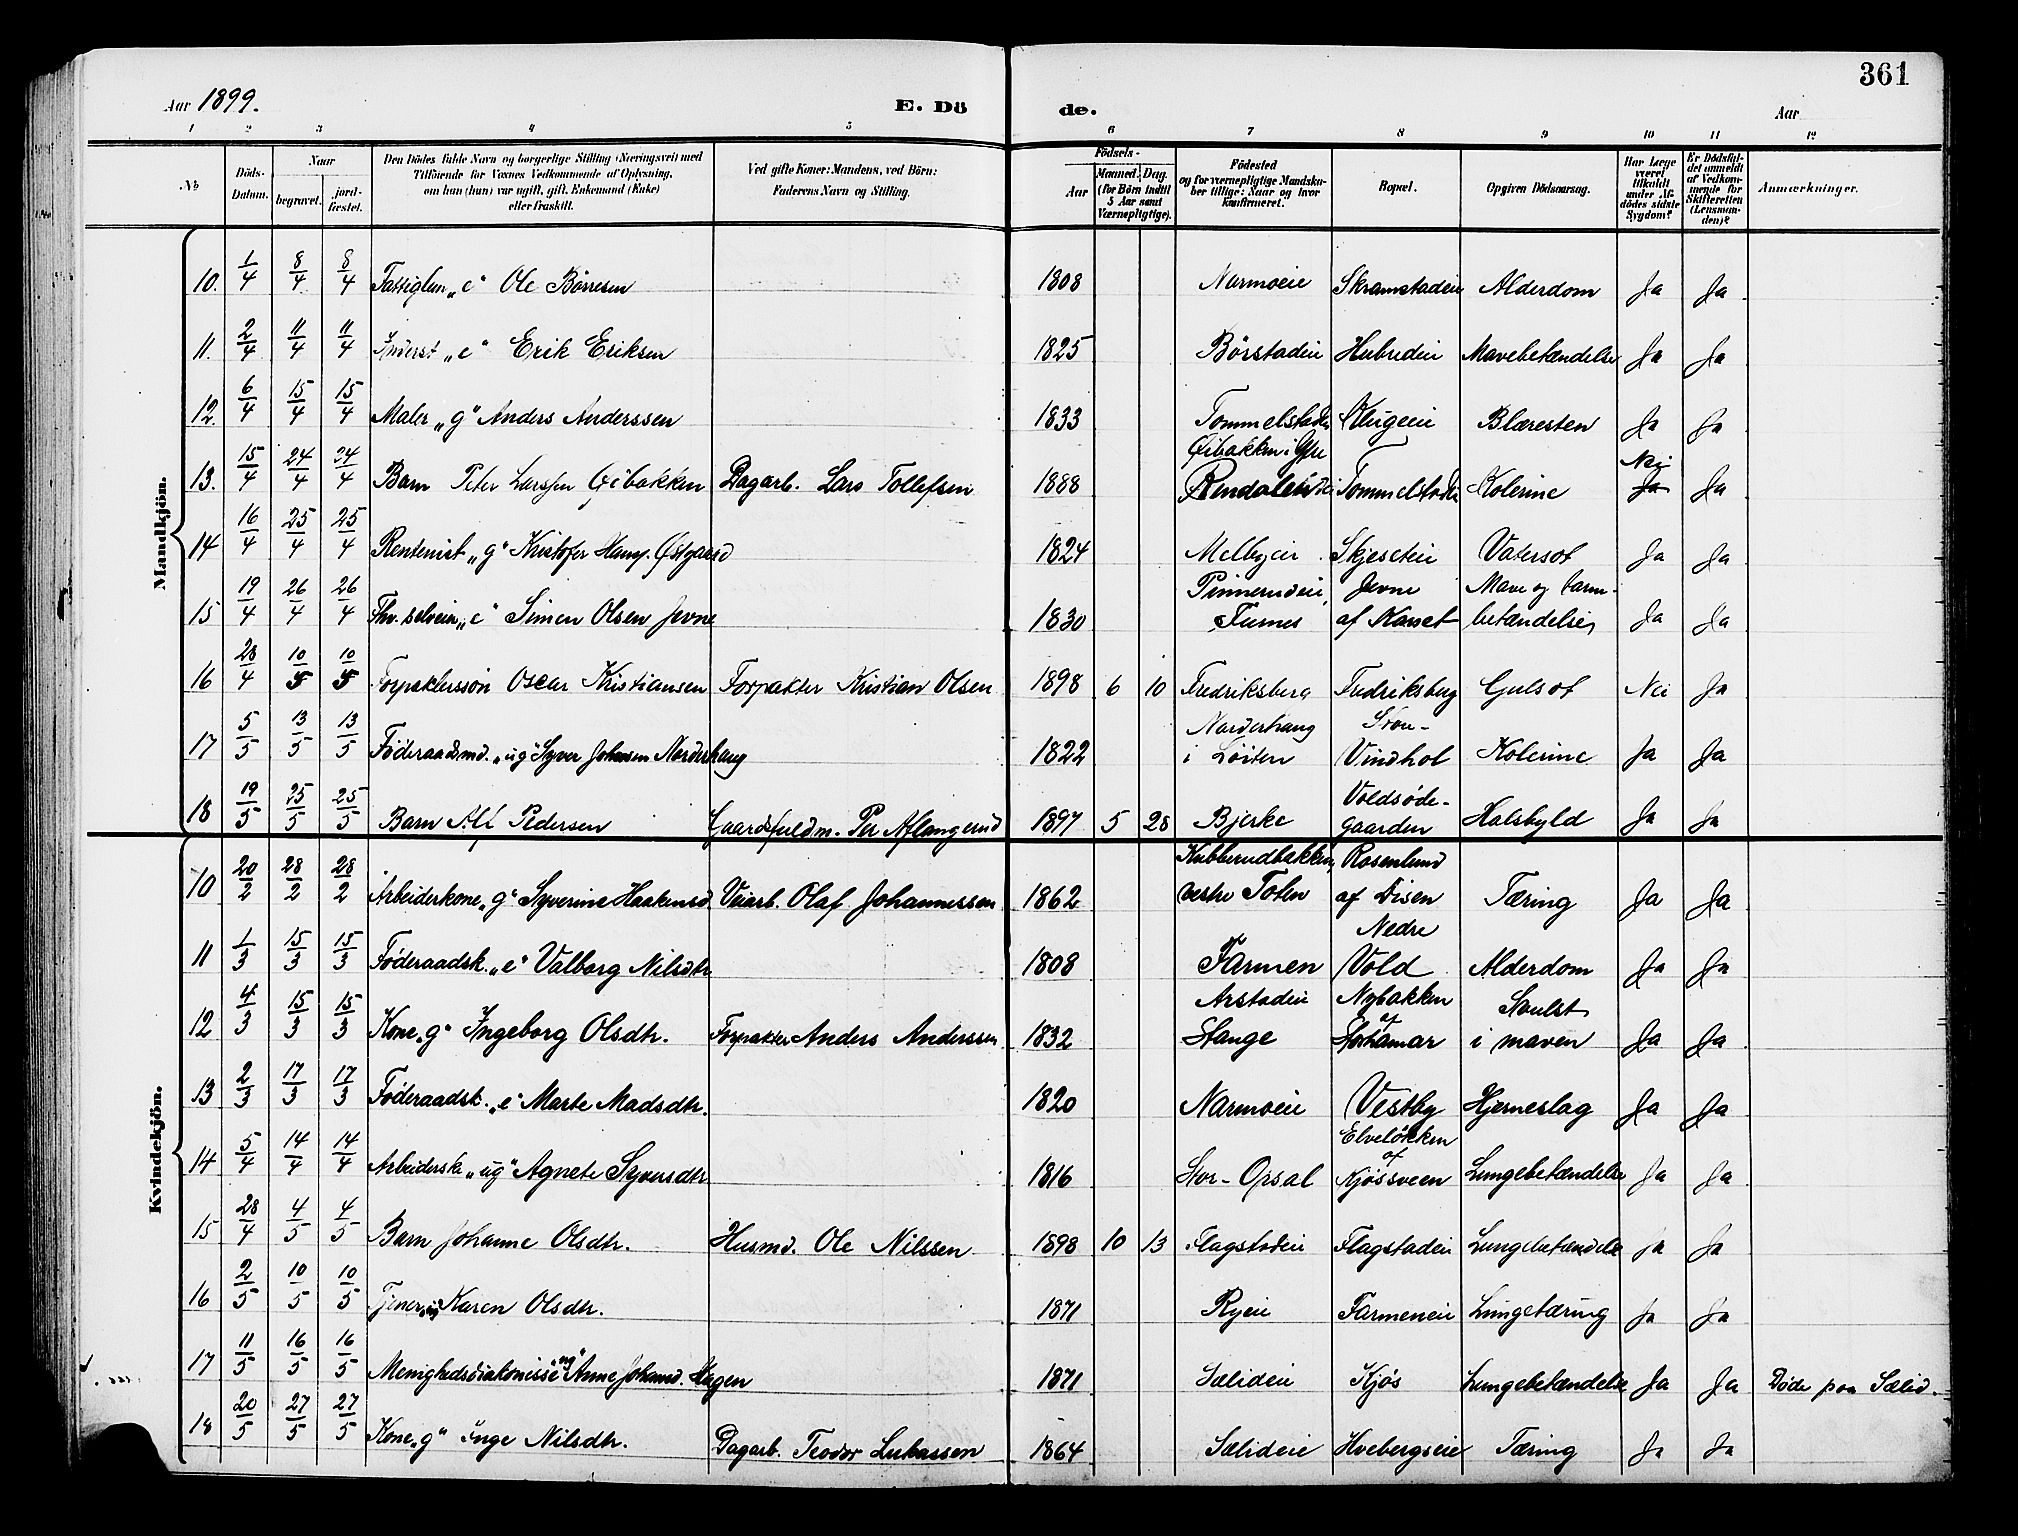 361
Aar 1899. E. Dö de. Aar
1 2 3 4 5 6 7 8 9 10 11 12
No
Döds-Datum.
Naar
begravet.
jord-fæstet.
Den Dödes fulde Navn og borgerlige Stilling (Næringsvei) med
Tilföiende for Voxnes Vedkommende af Oplysning,
om han (hun) var ugift, gift, Enkemand (Enke)
eller fraskilt.
Ved gifte Koner: Mandens, ved Börn:
Faderens Navn og Stilling.
Födsels-
Aar
Maaned. Dag.
(for Börn indtil
5 Aar samt
Værnepligtige).
Födested
og for værnepligtige Mandska-
ber tillige: Naar og hvor
konfirmeret.
Bopæl.
Opgiven Dödsaarsag.
Har Læge
været
tilkaldt
under Af-
dödes sidste
Sygdom?
Er Dödsfal-
det anmeldt
af Vedkom-
mende for
Skifteretten
(Lensman-
den)?
Anmærkninger.
Mandkjön.
10. 1/4 8/4 8/4 Fattiglem „e“ Ole Börresen 1808 Narmoeie Skramstadeie Alderdom Ja Ja
11. 2/4 11/4 11/4 Inderst „e“ Erik Eriksen 1825 Börstadeie Hubredeie Mavebetændelse Ja Ja
12. 6/4 15/4 15/4 Maler „g“ Anders Anderssen 1833 Tommelstadei Klugeeie Blæresten Ja Ja
13. 15/4 24/4 24/4 Barn Peter Larssen Öibakken Dagarb. Lars Tollefsen 1888 Öibakken i Ytre Rendalen Tommelstadei Kolerine Nei Ja Ja
14 16/4 25/4 25/4 Rentenist „g“ Kristofer Hans. Östgaard 1824 Melbyeie Skjeseteie Vatersot Ja Ja
15 19/4 26/4 26/4 Fhv. selveier „e“ Simen Olsen Jevne 1830 Pinnerudeie, Furnes Jevne af Kaaset Mave og tarm-betændelse, Ja Ja
16 28/4 10/5 10/5 Forpaktersson Oscar Kristiansen Forpakter Kristian Olsen 1898 6 10 Fredriksberg Fredriksberg Gulsot Nei Ja
17 5/5 13/5 13/5 Föderaadsmd. „ug“ Syver Johansen Norderhaug 1822 Norderhaug i Löiten Store-Vindhol Kolerine Ja Ja
18 19/5 25/5 25/5 Barn Alf Pedersen Gaardsfuldm. Per Aflangerud 1897 5 28 Bjerke Voldsöde-gaarden Halsbyld Ja Ja
Kvindekjön.
10 20/2 28/2 28/2 Arbeiderkone „g“ Syverine Haakensd. Veiarb. Olaf Johannessen 1862 Kubberudbakken, vestre Toten Rosenlund af Disen Tæring Ja Ja
11 1/3 15/3 15/3 Föderaadsk. „e“ Valborg Nilsdtr. 1808 Farmen Nedre Vold Alderdom Ja Ja
12 4/3 15/3 15/3 Kone „g“ Ingeborg Olsdtr. Forpakter Anders Anderssen 1832 Arstadeie Stange Nybakken af Storhamar Svulst i maven Ja Ja
13 2/3 17/3 17/3 Föderaadsk. „e“ Marte Madsdtr. 1820 Narmoeie Vestby Hjerneslag Ja Ja
14 5/4 14/4 14/4 Arbeiderske „ug“ Agnete Syversdtr 1816 Stor-Opsal Elvelökken af Kjössveen Lungebetændelse Ja Ja
15 28/4 4/5 4/5 Barn Johanne Olsdtr. Husmd. Ole Nilssen 1898 10 13 Flagstadeie Flagstadeie Lungebetændelse Ja Ja
16 2/5 10/5 10/5 Tjener „ug“ Karen Olsdtr. 1871 Ryeie Farmeneie Lungetæring Ja Ja
17 11/5 16/5 16/5 Menighedsdiakonisse „ug“ Anne Johansd. Hagen 1871 Sælideie Kjös Lungebetændelse Ja Ja Döde paa Sælid.
18 20/5 27/5 27/5 Kone „g“ Inge Nilsdtr. Dagarb. Teodor Lukassen 1864 Sælideie Hvebergseie Tæring Ja Ja